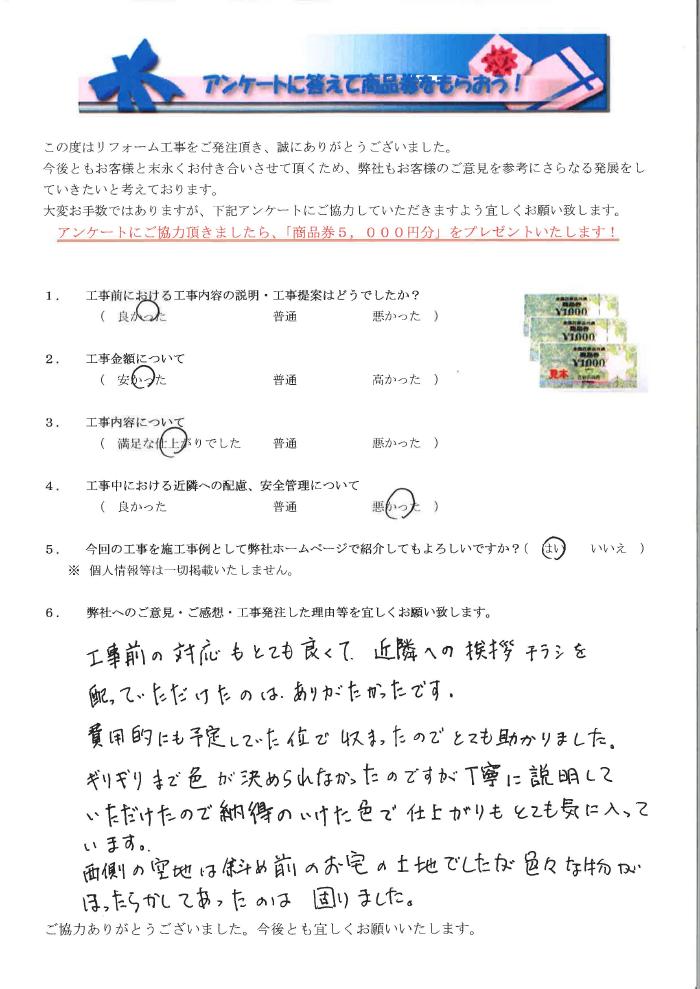 アンケートに答えて商品券をもらおう！
この度はリフォーム工事をご発注頂き、誠にありがとうございました。
今後ともお客様と末永くお付き合いさせて頂くため、弊社もお客様のご意見を参考にさらなる発展をし
ていきたいと考えております。
大変お手数ではありますが、下記アンケートにご協力していただきますよう宜しくお願い致します。
アンケートにご協力頂きましたら、「商品券５，０００円分」をプレゼントいたします！
１． 工事前における工事内容の説明・工事提案はどうでしたか？
（ 良かった 普通 悪かった ）
商品券
¥1,000
商品券
¥1,000
見本
２． 工事金額について
（ 安かった 普通 高かった ）
３． 工事内容について
（ 満足な仕上がりでした 普通 悪かった ）
４． 工事中における近隣への配慮、安全管理について
（ 良かった 普通 悪かった ）
５． 今回の工事を施工事例として弊社ホームページで紹介してもよろしいですか？（ はい いいえ ）
※ 個人情報等は一切掲載いたしません。
６． 弊社へのご意見・ご感想・工事発注した理由等を宜しくお願い致します。
工事前の対応もとても良くて、近隣への挨拶チラシを
配っていただけたのは、ありがたかったです。
費用的にも予定していた位で収まったのでとても助かりました。
ギリギリまで色が決められなかったのですが丁寧に説明して
いただけたので納得のいけた色で仕上がりもとても気に入って
います。
西側の空地は斜め前のお宅の土地でしたが色々な物が
ほったらかしてあったのは 困りました。
ご協力ありがとうございました。今後とも宜しくお願いいたします。